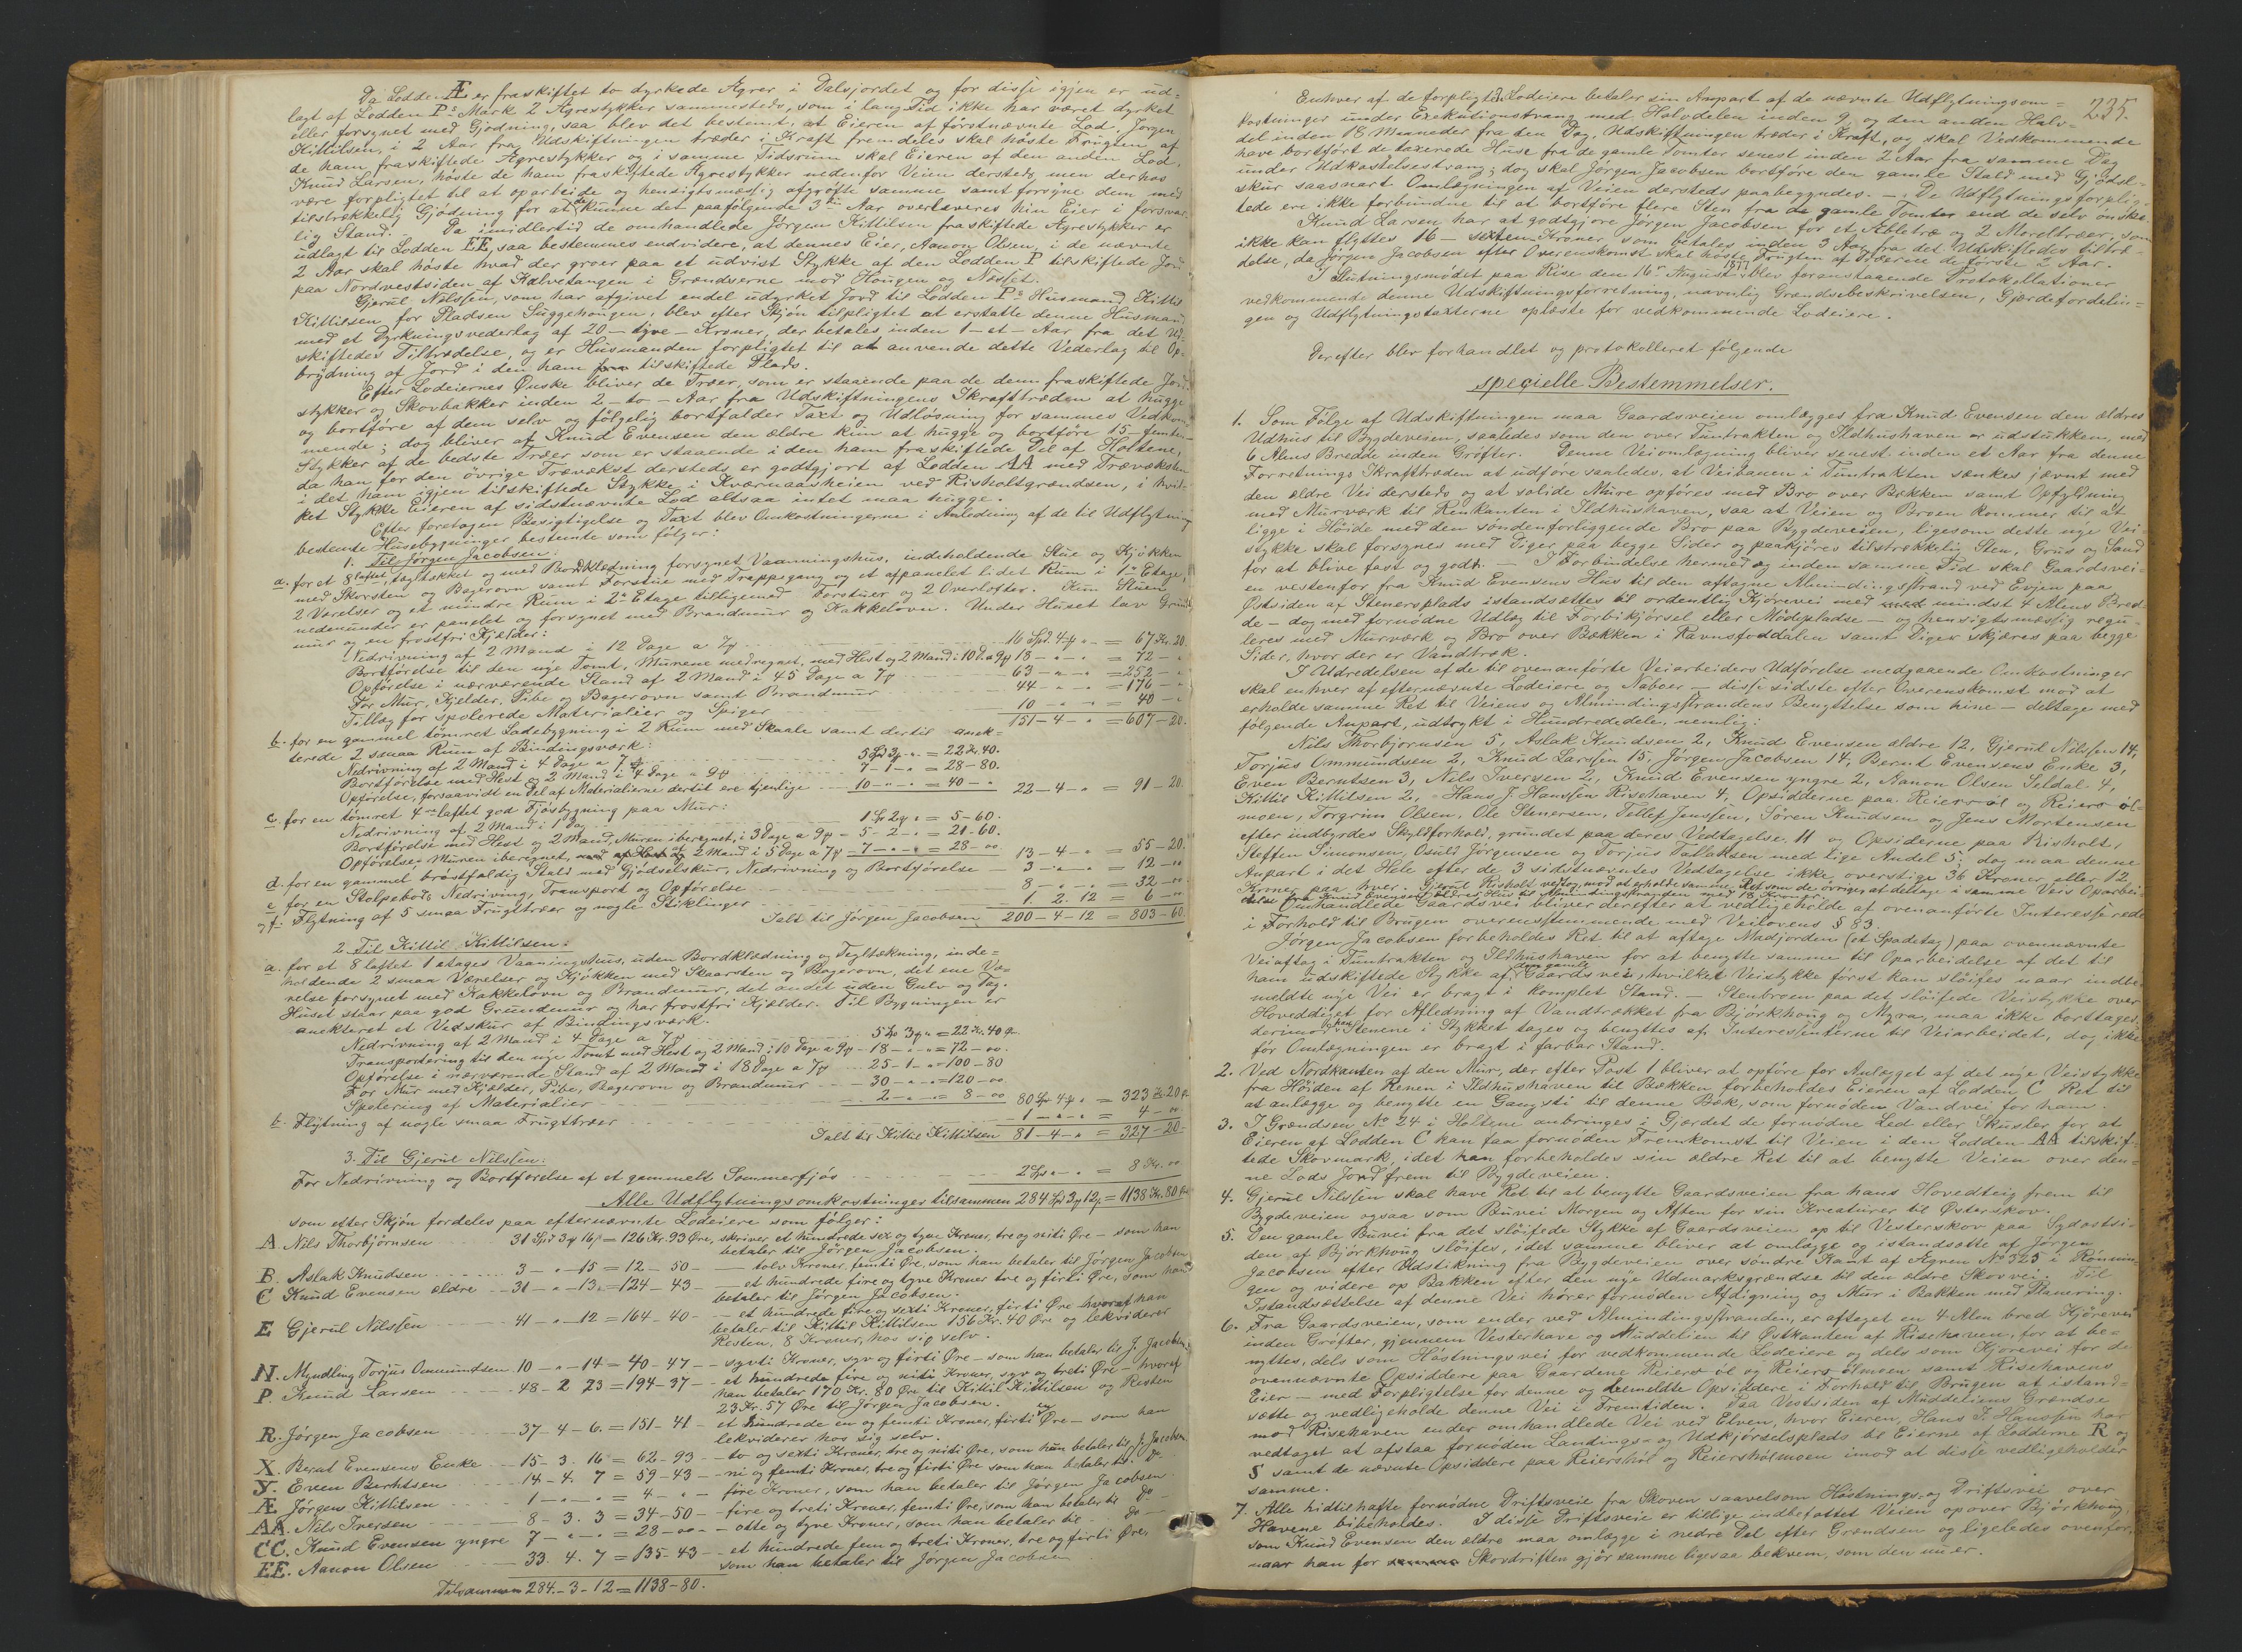 Da Lodden Æ er fraskiftet to dyrkede Agrer i Dalsjordet og for disse igjen er ud-
lagt af Lodden Ps Mark 2 Agrestykker sammesteds, som i lang Tid ikke har været dyrket
eller forsynet med Gjødning, saa blev det bestemt, at Eieren af førstnævnte Lod, Jørgen
Kittilsen, i 2 Aar fra Udskiftningen træder i Kraft fremdeles skal høste Frugten af
de ham fraskiftede Agrestykker og i samme Tidsrum skal Eieren af den anden Lod,
Knud Larsen, høste de ham fraskiftede Agrestykker nedenfor Veien dersteds, men derhos
være forpligtet til at oparbeide og hensigtsmæssig afgrøfte samme samt forsyne dem med
tilstrækkelig Gjødning for at de kunne det paafølgende 3die Aar overleveres hin Eier i forsvar-
lig Stand. Da imidlertid de omhandlede Jørgen Kittilsen fraskiftede Agrestykker er
udlagt til Lodden EE, saa bestemmes endvidere, at dennes Eier, Aanon Olsen, i de nævnte
2 Aar skal høste hvad der groer paa et udvist Stykke af den Lodden P tilskiftede Jord
paa Nordvestsiden af Kalvetangen i Grændserne mod Hougen og Næsset.
Gjerul Nilssen, som har afgivet endel udyrket Jord til Lodden Ps Husmand Kittil
Kittilsen for Pladsen Suggehougen, blev efter Skjøn tilpligtet at erstatte denne Husmand
med et Dyrkningsvederlag af 20 – tyve – Kroner, der betales inden 1 – et – Aar fra det Ud-
skiftedes Tiltrædelse, og er Husmanden forpligtet til at anvende dette Vederlag til Op-
brydning af Jord i den ham tilskiftede Plads.
Efter Lodeiernes Ønske bliver de Træer, som er staaende paa de dem fraskiftede Jord-
stykker og Skovbakker inden 2 – to – Aar fra Udskiftningens Ikrafttræden at hugge
og bortføre af dem selv og følgelig bortfalder Taxt og Udløsning for sammes Vedkom-
mende; dog bliver af Knud Evensen den ældre kun at hugge og bortføre 15 – femten
Stykker af de bedste Træer som er staaende i den ham fraskiftede Del af Holtene,
da han for den øvrige Trævækst dersteds er godtgjort af Lodden AA med Trævæksten
i det ham igjen tilskiftede Stykke i Kværmaasheien ved Risholtgrændsen, i hvil-
ket Stykke Eieren af sidstnævnte Lod altsaa intet maa hugge.
Efter foretagen Besigtigelse og Taxt blev Omkostningerne i Anledning af de til Udflytning
bestemte Husebygninger bestemte som følger:
1. Til Jørgen Jacobsen:
a. for et 8 laftet, tagtækket og med Bordklædning forsynet Vaaningshus, indeholdende Stue og Kjøkken
med Skorsten og Bagerovn samt Forstue med Trappegang og et afpanelet lidet Rum i 1ste Etage,
2 Værelser og et mindre Rum i 2den Etage tilligemed Forstuer og 2 Overlofter. Kun Stuen
nedenunder er panelet og forsynet med Brandmur og Kakkelovn. Under Huset lav Grund-
mur og en frostfri Kjælder:
Nedrivning af 2 Mand i 12 Dage a 7ß – 16 Spd. 4 ß " = 67 Kr. 20
Bortførelse til den nye Tomt, Murene medregnet, med Hest og 2 Mand i 10 D. a 9ß 18 – " – " = 72 – "
Opførelse i nærværende Stand af 2 Mand i 45 Dage a 7ß – 63 – " – " = 252 – "
For Mur, Kjelder, Pibe og Bagerovn samt Brandmur – 44 – " – " = 176 – "
Tillæg for spolerede Materialier og Spiger – 10 – " – " = 40 – "
151 – 4 – " = 607 – 20.
b. for en gammel tømret Ladebygning i 2 Rum med Skaale samt dertil anek-
terede 2 smaa Rum af Bindingsværk:
Nedrivning af 2 Mand i 4 Dage a 7ß – 5 Spd 3ß " = 22 Kr. 40.
Bortførelse med Hest og 2 Mand i 4 Dage a 9ß – 7 – 1 – " = 28 – 80.
Opførelse, forsaavidt en Del af Materialierne dertil ere tjenlige – 10 – " – " = 40 – " 22 – 4 – " = 91 – 20.
c. for en tømret 4 laftet god Fjøsbygning paa Mur:
Nedrivning af 2 Mand i 1 Dag – 1 Sp 2ß " = 5 – 60.
Bortførelse med Hest og 2 Mand, Muren iberegnet, i 3 Dage a 9ß – 5 – 2 – " = 21 – 60.
Opførelse, Muren iberegnet, af 2 Mand i 5 Dage a 7ß – 7 – " – " = 28 – 00 13 – 4 – " = 55 – 20.
d. for en gammel brøstfældig Stald med Gjødselskur, Nedrivning og Bortførelse – 3 – " – " = 12 – 00
e. for en Stolpebod, Nedrivning, Transport og Opførelse – 8 – " – " = 32 – 00
og f. Flytning af 5 smaa Frugttræer og nogle Stiklinger – 1. 2. 12 = 6 – 00
Ialt til Jørgen Jacobsen 200 – 4 – 12 = 803 – 60
2. Til Kittil Kittilsen:
a. for et 8 laftet 1 etages Vaaningshus, uden Bordklædning og Tegltækning, inde-
holdende 2 smaa Værelser og Kjøkken med Skaarsten og Bagerovn, det ene Væ-
relse forsynet med Kakkelovn og Brandmur, det andet uden Gulv og Tag.
Huset staar paa god Grundmur og har frostfri Kjælder. Til Bygningen er
anekteret et Vedskur af Bindingsværk.
Nedrivning af 2 Mand i 4 Dage a 7ß – 5 Sp 3ß " = 22 Kr. 40 Ø.
Transportering til den nye Tomt med Hest og 2 Mand i 10 Dage a 9ß – 18 – " – " = 72 – 00.
Opførelse i nærværende Stand af 2 Mand i 18 Dage a 7ß – 25 – 1 – " = 100 – 80
For Mur med Kjælder, Pibe, Bagerovn og Brandmur – 30 – " – " = 120 – 00
Spolering af Materialier – 2 – " – " = 8 – 00 80 Sp 4ß " = 323 Kr. 20 Ø.
b. Flytning af nogle smaa Frugttræer – 1 – " – " = 4 – 00.
Ialt til Kittil Kittilsen 81 – 4 – " = 327 – 20 –
3. Til Gjerul Nilssen:
For Nedrivning og Bortførelse af et gammelt Sommerfjøs – 2 Sp " – " = 8 Kr. 00
Alle Udflytningsomkostninger tilsammen 284 Sp 3ß 12ß = 1138 Kr. 80 Øre
som efter Skjøn fordeles paa efternævnte Lodeiere som følger:
A. Nils Thorbjørnsen 31 Spd 3ß 16ß = 126 Kr. 93 Øre, skriver et hundrede sex og tyve Kroner, tre og niti Øre – som han
betaler til Jørgen Jacobsen.
B. Aslak Knudsen 3 – " – 15 = 12 – 50 – – tolv Kroner, femti Øre, som han betaler til Jørgen Jacobsen
C Knud Evensen ældre 31 – " – 13 = 124 – 43 – et hundrede fire og tyve Kroner tre og firti Øre, som han
betaler til Jørgen Jacobsen.
E Gjerul Nilssen 41 – " – 12 = 164 – 40 – et hundrede fire og sexti Kroner, firti Øre hvoraf han
betaler til Kittil Kittilsen 156 Kr. 40 Øre og lekviderer
Resten, 8 Kroner, hos sig selv.
N. Myndling Torjus Ommundsen 10 – " – 14 = 40 – 47 – – syvti Kroner, syv og firti Øre – som han betaler til J. Jacobsen
P. Knud Larsen 48 – 2 23 = 194 – 37 – et hundrede fire og niti Kroner, syv og treti Øre – hvoraf
han betaler 170 Kr. 80 Øre til Kittil Kittilsen og Resten
23 Kr. 57 Øre til Jørgen Jacobsen.
R. Jørgen Jacobsen 37 – 4 – 6. = 151 – 41 – et hundrede en og femti Kroner, firti en Øre – som han
lekviderer hos sig selv.
X. Bernt Evensens Enke 15 – 3. 16 = 62 – 93 – to og sexti Kroner, tre og niti Øre, som hun betaler til J. Jacobsen.
Y. Even Berntsen 14 – 4. 7 = 59 – 43 – ni og femti Kroner, tre og firti Øre som han betaler til Do
Æ Jørgens Kittilsen 1 – " – " = 4 – " – fire Kroner, som han betaler til Jørgen Jacobsen.
AA. Nils Iversen 8 – 3. 3 = 34 – 50 – – fire og treti Kroner, femti Øre, som han betaler til Do –
CC. Knud Evensen yngre 7 – " – " = 28 – 00 – – otte og tyve Kroner, som han betaler til Do –
EE. Aanon Olsen 33. 4. 7 = 135 – 43 – – et hundrede fem og treti Kroner, tre og firti Øre,
som han betaler til Jørgen Jacobsen
Tilsammen 284. – 3 – 12 = 1138 – 80.
235.
Enhver af de forpligtede Lodeiere betaler sin Anpart af de nævnte Udflytningsom-
kostninger under Exekutionstvang med Halvdelen inden 9 og den anden Halv-
del inden 18 Maaneder fra den Dag, Udskiftningen træder i Kraft, og skal Vedkommende
have bortført de taxerede Huse fra de gamle Tomter senest inden 2 Aar fra samme Dag
under Udkastelsestvang; dog skal Jørgen Jacobsen bortføre den gamle Stald med Gjødsel-
skur saasnart Omlægningen af Veien dersteds paabegyndes. – De Udflytningsforplig-
tede ere ikke forbundne til at bortføre flere Sten fra de gamle Tomter end de selv ønske.
Knud Larsen har at godtgjøre Jørgen Jacobsen for et Æbletræ og 2 Moreltræer, som
ikke kan flyttes 16 – sexten Kroner, som betales inden 3 Aar fra det Udskiftedes Tiltræ-
delse, da Jørgen Jacobsen efter Overenskomst skal høste Frugten af Træerne de første 2 Aar.
I Slutningsmødet paa Rise den 16de August 1877 blev foranstaaende Protokollationer
vedkommende denne Udskiftningsforretning, navnlig Grændsebeskrivelsen, Gjærdefordelin-
gen og Udflytningstaxterne oplæste for vedkommende Lodeiere.
Derefter blev forhandlet og protokolleret følgende
specielle Bestemmelser.
1. Som Følge af Udskiftningen maa Gaardsveien omlægges fra Knud Evensen den ældres
Udhus til Bygdeveien, saaledes som den over Tuntrakten og Ildhushaven er udstukken, med
6 Alens Bredde inden Grøfter. Denne Veiomlægning bliver senest inden et Aar fra denne
Forretnings Ikrafttræden at udføre saaledes, at Veibanen i Tuntrakten sænkes jævnt med
den ældre Vei dersteds og at solide Mure opføres med Bro over Bækken samt Opfyldning
med Murværk til Renkanten i Ildhushaven, saa at Veien og Broen kommer til at
ligge i Høide med den søndenforliggende Bro paa Bygdeveien, ligesom dette nye Vei-
stykke skal forsynes med Diger paa begge Sider og paakjøres tilstrækkelig Sten, Grus og Sand
for at blive fast og godt. – I Forbindelse hermed og inden samme Tid skal Gaardsvei-
en vestenfor fra Knud Evensens Hus til den aftagne Almindingsstrand ved Evjen paa
Østsiden af Stenersplads istandsættes til ordentlig Kjørevei med mindst 4 Alens Bred-
de – dog med fornødne Udlæg til Forbikjørsel eller Mødepladse – og hensigtsmæssig regu-
leres med Murværk og Bro over Bækken i Ravnsfoddalen samt Diger skjæres paa begge
Sider, hvor der er Vandtræk.
I Udredelsen af de til ovenanførte Veiarbeiders Udførelse medgaaende Omkostninger
skal enhver af efternævnte Lodeiere og Naboer – disse sidste efter Overenskomst mod at
erholde samme Ret til Veiens og Almindingsstrandens Benyttelse som hine – deltage med
følgende Anpart, udtrykt i Hundrededele, nemlig:
Nils Thorbjørnsen 5, Aslak Knudsen 2, Knud Evensen ældre 12, Gjerul Nilssen 14,
Torjus Ommundsen 2, Knud Larssen 15, Jørgen Jacobsen 14, Bernt Evensens Enke 3,
Even Berntsen 3, Nils Iversen 2, Knud Evensen yngre 2, Aanon Olsen Seldal 4,
Kittil Kittilsen 2, Hans J. Hanssen Risehaven 4, Opsidderne paa Reiersøl og Reiersøl-
moen, Torgrim Olsen, Ole Stenersen, Tellef Jenssen, Søren Knudsen og Jens Mortensen
efter indbyrdes Skyldforhold, grundet paa deres Vedtagelse 11 og Opsiderne paa Risholt,
Steffen Simonsen, Osuld Jørgensen og Torjus Tallaksen med lige Andel 5; dog maa denne
Anpart i det Hele efter de 3 sidstnævntes Vedtagelse ikke overstige 36 Kroner eller 12
Kroner paa hver. Gjerul Risholt vedtog mod at erholde samme Ret som de øvrige, at deltage i samme Veis Oparbei-
delse fra Knud Evensen ældres Hus til Almindingsstranden med 18 Kroner.
Omhandlede Gaardsvei bliver derefter at vedligeholde af ovenanførte Interesserede
i Forhold til Brugen overensstemmende med Veilovens § 83.
Jørgen Jacobsen forbeholdes Ret til at aftage Madjorden (et Spadetag) paa ovennævnte
Veiaftag i Tuntrakten og Ildhushaven for at benytte samme til Oparbeidelse af det til
ham udskiftede Stykke af den gamle Gaardsvei, hvilket Veistykke først kan sløifes naar indbe-
meldte nye Vei er bragt i komplet Stand. – Stenbroen paa det sløifede Veistykke over
Hoveddiget for Afledning af Vandtrækket fra Bjørkhoug og Myra, maa ikke borttages,
derimod kan Stenene i Stykket tages og benyttes af Interessenterne til Veiarbeidet, dog ikke
før Omlægningen er bragt i farbar Stand.
2. Ved Nordkanten af den Mur, der efter Post 1 bliver at opføre for Anlægget af det nye Veistykke
fra Høiden af Renen i Ildhushaven til Bækken, forbeholdes Eieren af Lodden C Ret til
at anlægge og benytte en Gangsti til denne Bæk, som fornøden Vandvei for ham.
3. I Grændsen No 24 i Holtene anbringes i Gjærdet de fornødne Led eller Skuster for at
Eieren af Lodden C kan faa fornøden Fremkomst til Veien i den Lodden AA tilskif-
tede Skovmark, idet han forbeholdes sin ældre Ret til at benytte Veien over den-
ne Lods Jord frem til Bygdeveien.
4. Gjerul Nilssen skal have Ret til at benytte Gaardsveien fra hans Hovedteig frem til
Bygdeveien ogsaa som Buvei Morgen og Aften for sin Kreaturer til Østerskov.
5. Den gamle Buvei fra det sløifede Stykke af Gaardsveien op til Vesterskov paa Sydostsi-
den af Bjørkhoug sløifes, idet samme bliver at omlægge og istandsætte af Jørgen
Jacobsen efter Udstikning fra Bygdeveien over søndre Kant af Agren No 325 i Rønnin-
gen og videre op Bakken efter den nye Udmarksgrændse til den ældre Skovvei. Til
Istandsættelse af denne Vei hører fornøden Afdigning og Mur i Bakken med Planering.
6. Fra Gaardsveien, som ender ved Almindingsstranden, er aftaget en 4 Alen bred Kjørevei
inden Grøfter, gjennem Vesterhave og Muddelien til Østkanten af Risehaven, for at be-
nyttes, dels som Høstningsvei for vedkommende Lodeiere og dels som Kjørevei for de
ovennævnte Opsiddere paa Gaardene Reiersøl og Reiersølmoen samt Risehavens
Eier – med Forpligtelse for denne og bemeldte Opsiddere i Forhold til Brugen at istand-
sætte og vedligeholde denne Vei i Fremtiden. Paa Vestsiden af Muddeliens Grændse
mod Risehaven ender omhandlede Vei ved Elven, hvor Eieren, Hans J. Hanssen har
vedtaget at afstaa fornøden Landings- og Udkjørselsplads til Eierne af Lodderne R og
S samt de nævnte Opsiddere paa Reiershøl og Reiershølmoen imod at disse vedligeholder
samme.
7. Alle hidtilhafte fornødne Driftsveie fra Skoven saavelsom Høstnings- og Driftsvei over
Havene bibeholdes. I disse Driftsveie er tillige indbefattet Veien opover Bjørkhoug,
som Knud Evensen den ældre maa omlægge i nedre Del efter Grændsen og ligeledes ovenfor,
naar han for Skovdriften gjør samme ligesaa bekvem, som den nu er.